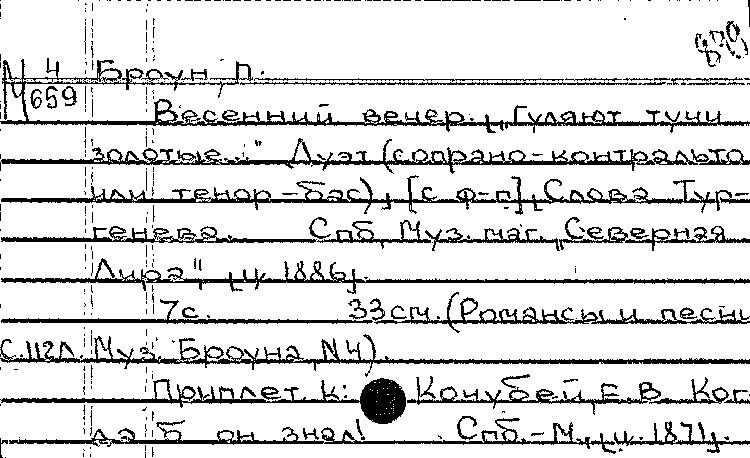 879
М 4/659 Броун, П.
Весенний вечер. „Гуляют тучи
золотые..." Дуэт (сопрано-контральто
или тенор-бас), [с ф-п]. Слова Тур-
генева. Спб, Муз. маг. „Северная
Лира", ц. 1886.
7с. 33см. (Романсы и песни
с. 112л. Муз. Броуна, N4).
Приплет. к: Кочубей, Е. В. Ког-
да б он знал! Спб.-М., ц. 1871.